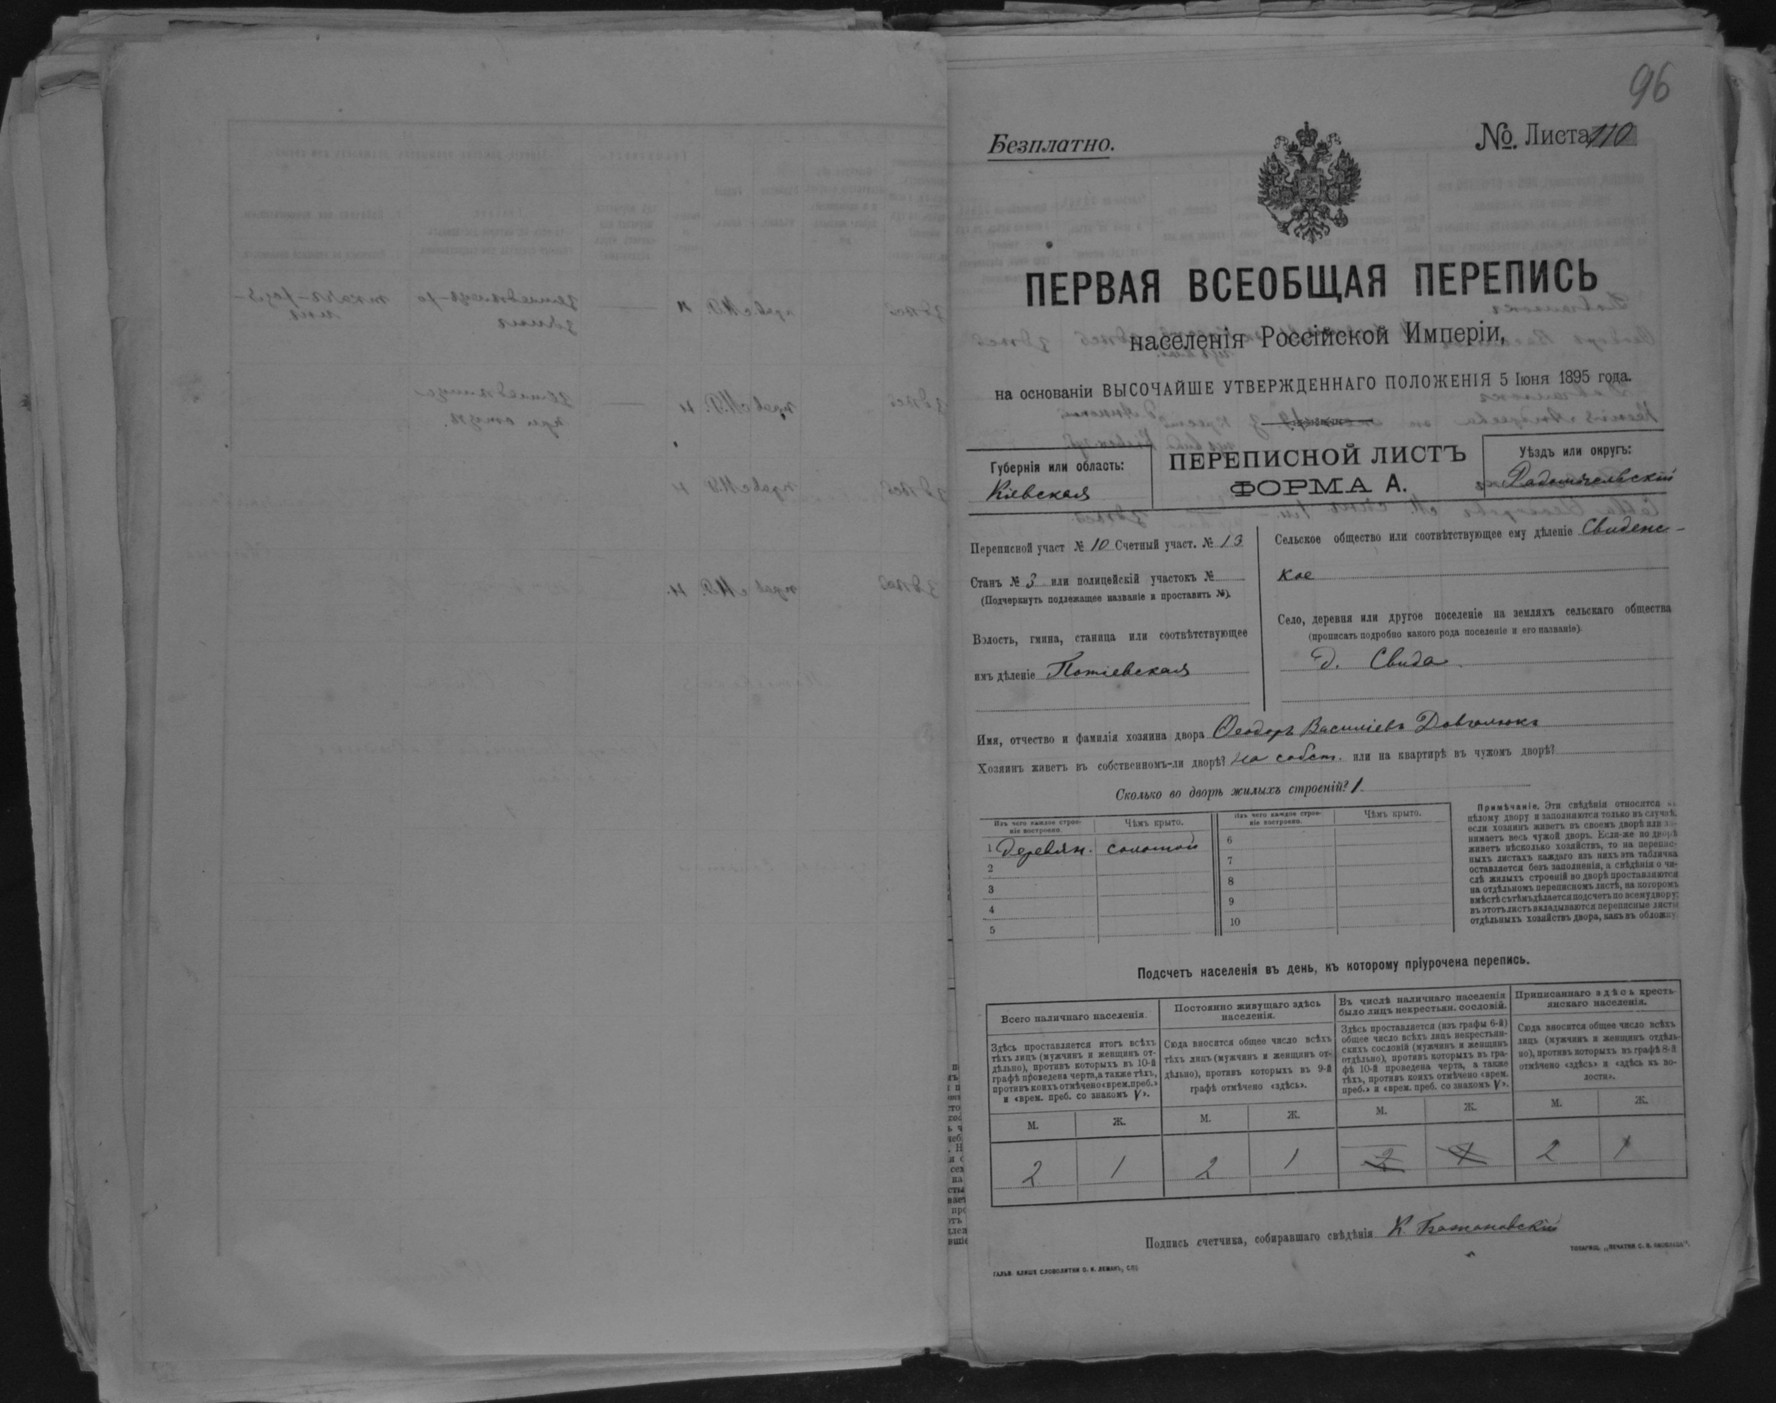 96
Безплатно.
№. Листа 110
ПЕРВАЯ ВСЕОБЩАЯ ПЕРЕПИСЬ
населенія Россійской Имперіи,
на основаніи ВЫСОЧАЙШЕ УТВЕРЖДЕННАГО ПОЛОЖЕНІЯ 5 Іюня 1895 года.
Губернія или область:
Кіевская
ПЕРЕПИСНОЙ ЛИСТЪ
ФОРМА А.
Уѣздъ или округъ:
Радомысльскій
Переписной участ № 10 Счетный участ. № 13
Станъ № 3 или полицейскій участокъ №
(Подчеркнуть подлежащее названіе и проставить №).
Волость, гмина, станица или соотвѣтствующее
имъ дѣленіе Потіевская
Сельское общество или соотвѣтствующее ему дѣленіе Свиденс-
кое
Село, деревня или другое поселеніе на земляхъ сельскаго общества
(прописать подробно какого рода поселеніе и его названіе).
д. Свида
Имя, отчество и фамилія хозяина двора Ѳеодоръ Василіевъ Довгалюкъ
Хозяинъ живетъ въ собственномъ-ли дворѣ? на собст. или на квартирѣ въ чужомъ дворѣ?
Сколько во дворѣ жилыхъ строеній? 1.
Изъ чего каждое строе-
ніе построено.
Чѣмъ крыто.
Изъ чего каждое строе-
ніе построено.
Чѣмъ крыто.
1 Деревян. соломой
2
3
4
5
6
7
8
9
10
Примѣчаніе. Эти свѣдѣнія относятся къ
цѣлому двору и заполняются только въ случаѣ,
если хозяинъ живетъ въ своемъ дворѣ или за-
нимаетъ весь чужой дворъ. Если-же во дворѣ
живетъ нѣсколько хозяйствъ, то на перепис-
ныхъ листахъ каждаго изъ нихъ эта табличка
оставляется безъ заполненія, а свѣдѣнія о чи-
слѣ жилыхъ строеній во дворѣ проставляются
на отдѣльномъ переписномъ листѣ, на которомъ
вмѣстѣ съ тѣмъ дѣлается подсчетъ по всему двору;
въ этотъ листъ вкладываются переписные листы
отдѣльныхъ хозяйствъ двора, какъ въ обложку.
Подсчетъ населенія въ день, къ которому пріурочена перепись.
Всего наличнаго населенія.
Здѣсь проставляется итогъ всѣхъ
тѣхъ лицъ (мужчинъ и женщинъ от-
дѣльно), противъ которыхъ въ 10-й
графѣ проведена черта, а также тѣхъ,
противъ коихъ отмѣчено «врем. преб.»
и «врем. преб. со знакомъ V».
Постоянно живущаго здѣсь
населенія.
Сюда вносится общее число всѣхъ
тѣхъ лицъ (мужчинъ и женщинъ от-
дѣльно), противъ которыхъ въ 9-й
графѣ отмѣчено «здѣсь».
Въ числѣ наличнаго населенія
было лицъ некрестьян. сословій.
Здѣсь проставляется (изъ графы 6-й)
общее число всѣхъ лицъ некрестьян-
скихъ сословій (мужчинъ и женщинъ
отдѣльно), противъ которыхъ въ гра-
фѣ 10-й проведена черта, а также
тѣхъ, противъ коихъ отмѣчено «врем.
преб.» и «врем. преб. со знакомъ V».
Приписаннаго здѣсь кресть-
янскаго населенія.
Сюда вносится общее число всѣхъ
лицъ (мужчинъ и женщинъ отдѣль-
но), противъ которыхъ въ графѣ 8-й
отмѣчено «здѣсь» и «здѣсь въ во-
лости».
М. Ж. М. Ж. М. Ж. М. Ж.
2 1 2 1 2 1 2 1
Подпись счетчика, собиравшаго свѣдѣнія К.
ГАЛЬВ. КЛИШЕ СЛОВОЛИТНИ О. И. ЛЕМАНЪ, СПБ